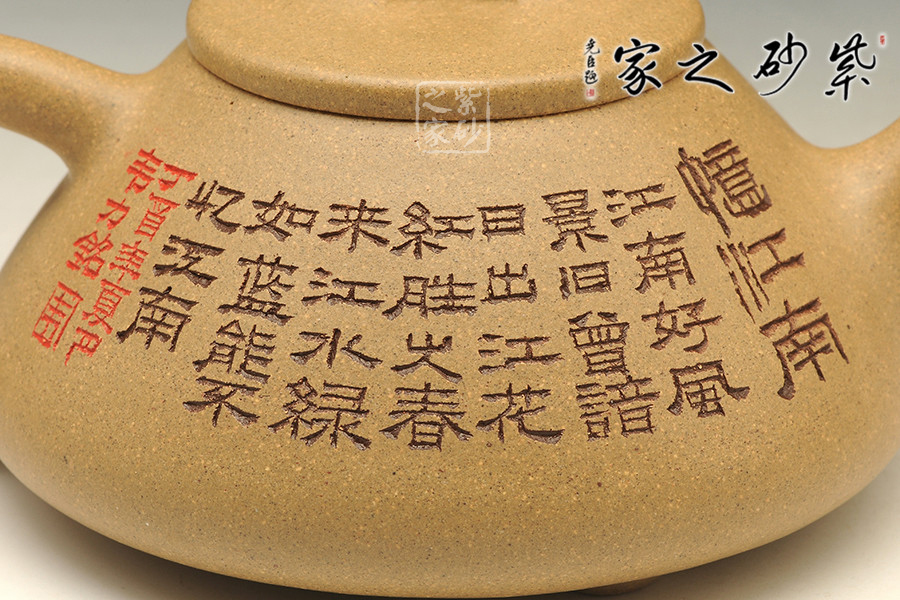 紫砂之家
尧臣题
紫砂之家
憶江南
江南好風
景旧曾諳
日出江花
紅胜火春
来江水緑
如蓝能不
忆江南